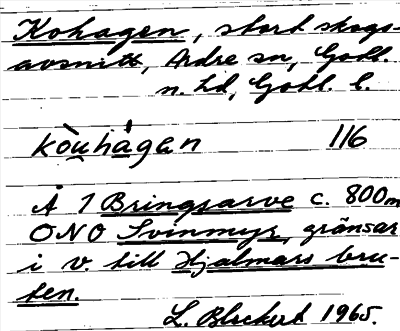 Kohagen, stort skogs-
avsnitt, Ardre sn, Gotl.
n. hd, Gotl. l.
kòu̯hágan 116
Å 1 Bringsarve c. 800m
ONO Svinmyr, gränsar
i v. till Hjalmars bru-
ten.
L. Bleckert 1965.